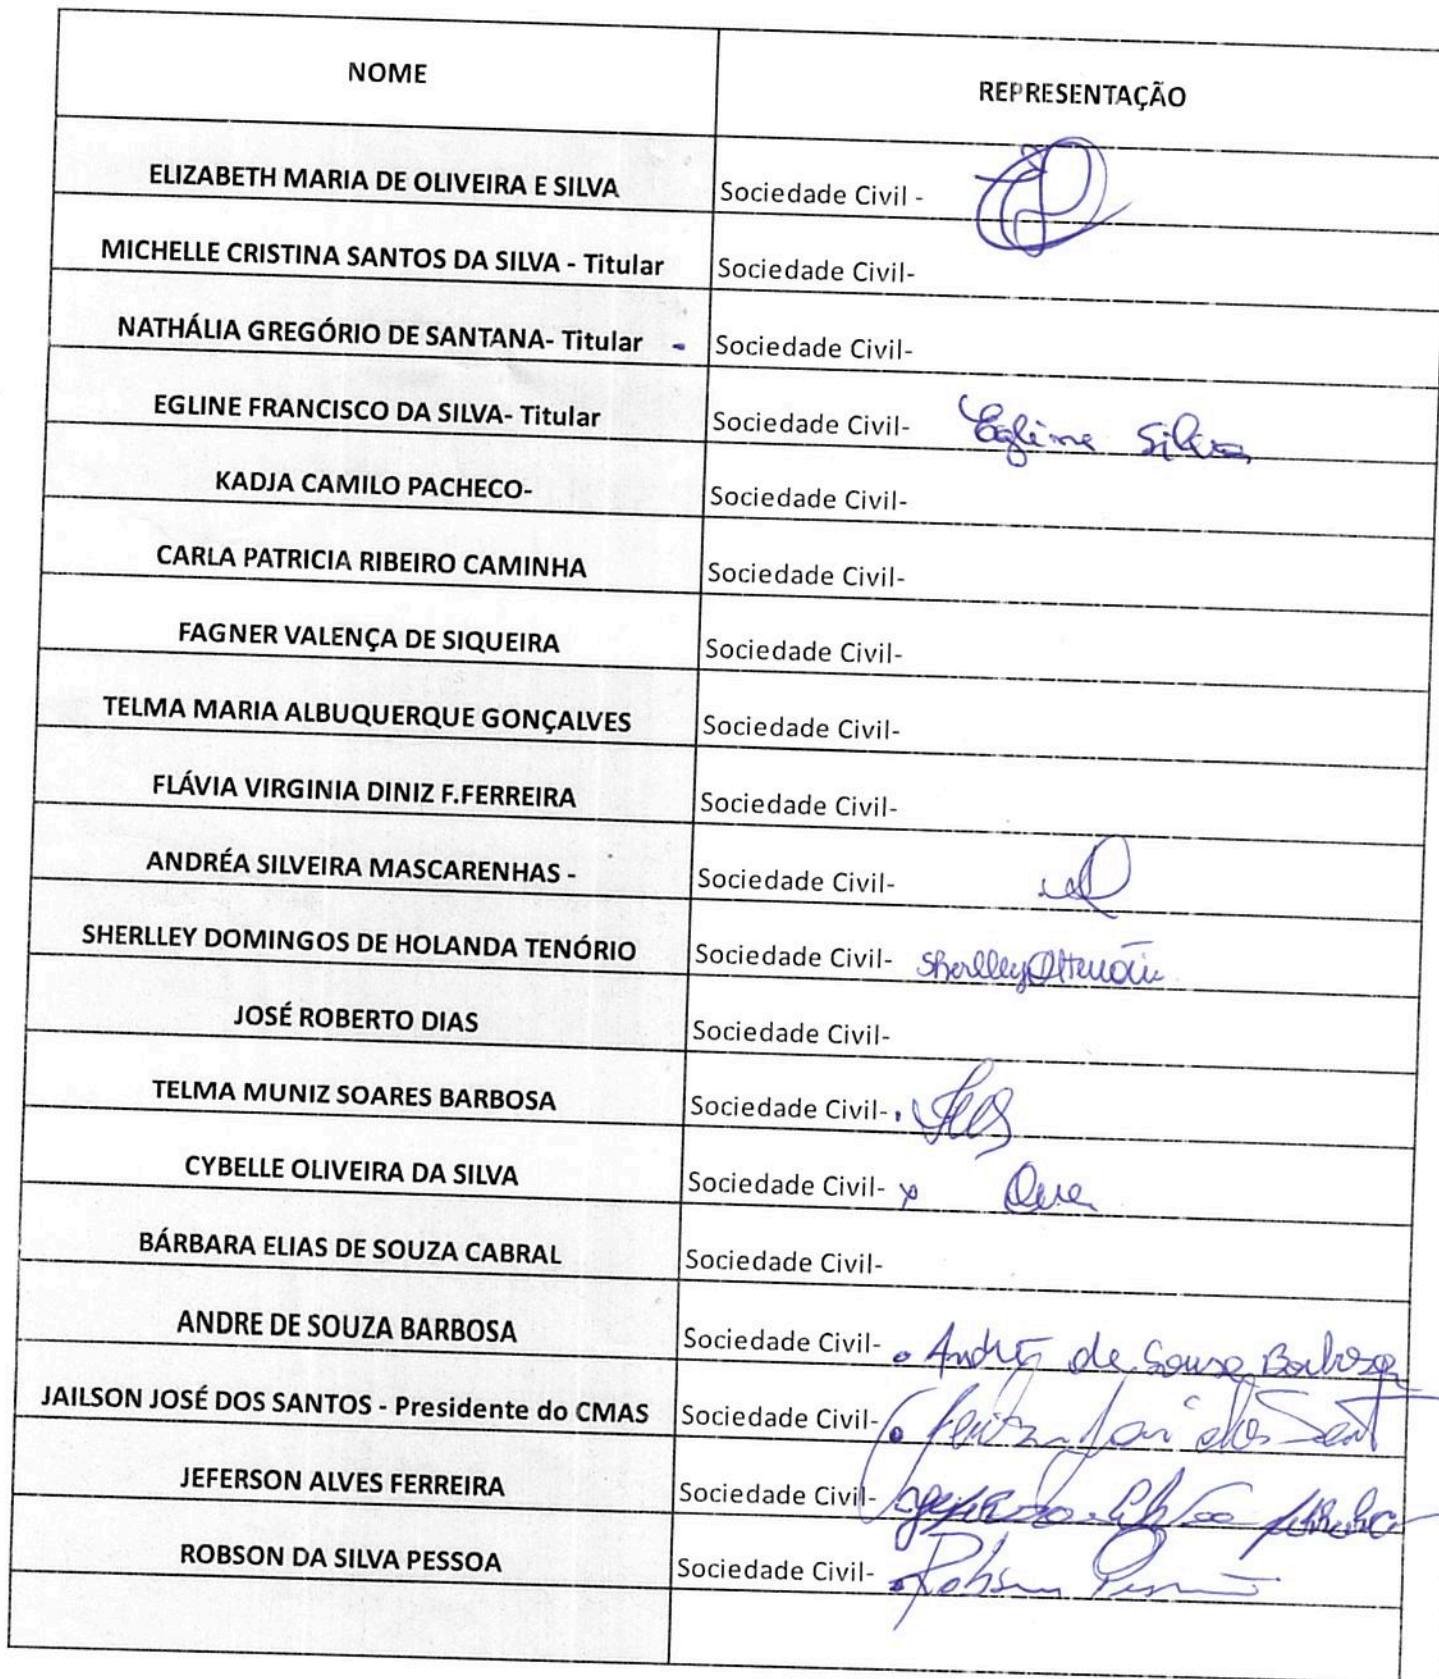 NOME REPRESENTAÇÃO
ELIZABETH MARIA DE OLIVEIRA E SILVA Sociedade Civil -
MICHELLE CRISTINA SANTOS DA SILVA - Titular Sociedade Civil-
NATHÁLIA GREGÓRIO DE SANTANA- Titular - Sociedade Civil-
EGLINE FRANCISCO DA SILVA- Titular Sociedade Civil- Egline Silva
KADJA CAMILO PACHECO- Sociedade Civil-
CARLA PATRICIA RIBEIRO CAMINHA Sociedade Civil-
FAGNER VALENÇA DE SIQUEIRA Sociedade Civil-
TELMA MARIA ALBUQUERQUE GONÇALVES Sociedade Civil-
FLÁVIA VIRGINIA DINIZ F.FERREIRA Sociedade Civil-
ANDRÉA SILVEIRA MASCARENHAS - Sociedade Civil-
SHERLLEY DOMINGOS DE HOLANDA TENÓRIO Sociedade Civil- Sherlley
JOSÉ ROBERTO DIAS Sociedade Civil-
TELMA MUNIZ SOARES BARBOSA Sociedade Civil-
CYBELLE OLIVEIRA DA SILVA Sociedade Civil- x
BÁRBARA ELIAS DE SOUZA CABRAL Sociedade Civil-
ANDRE DE SOUZA BARBOSA Sociedade Civil- André de Souza Barbosa
JAILSON JOSÉ DOS SANTOS - Presidente do CMAS Sociedade Civil-
JEFERSON ALVES FERREIRA Sociedade Civil-
ROBSON DA SILVA PESSOA Sociedade Civil- Robson Pessoa